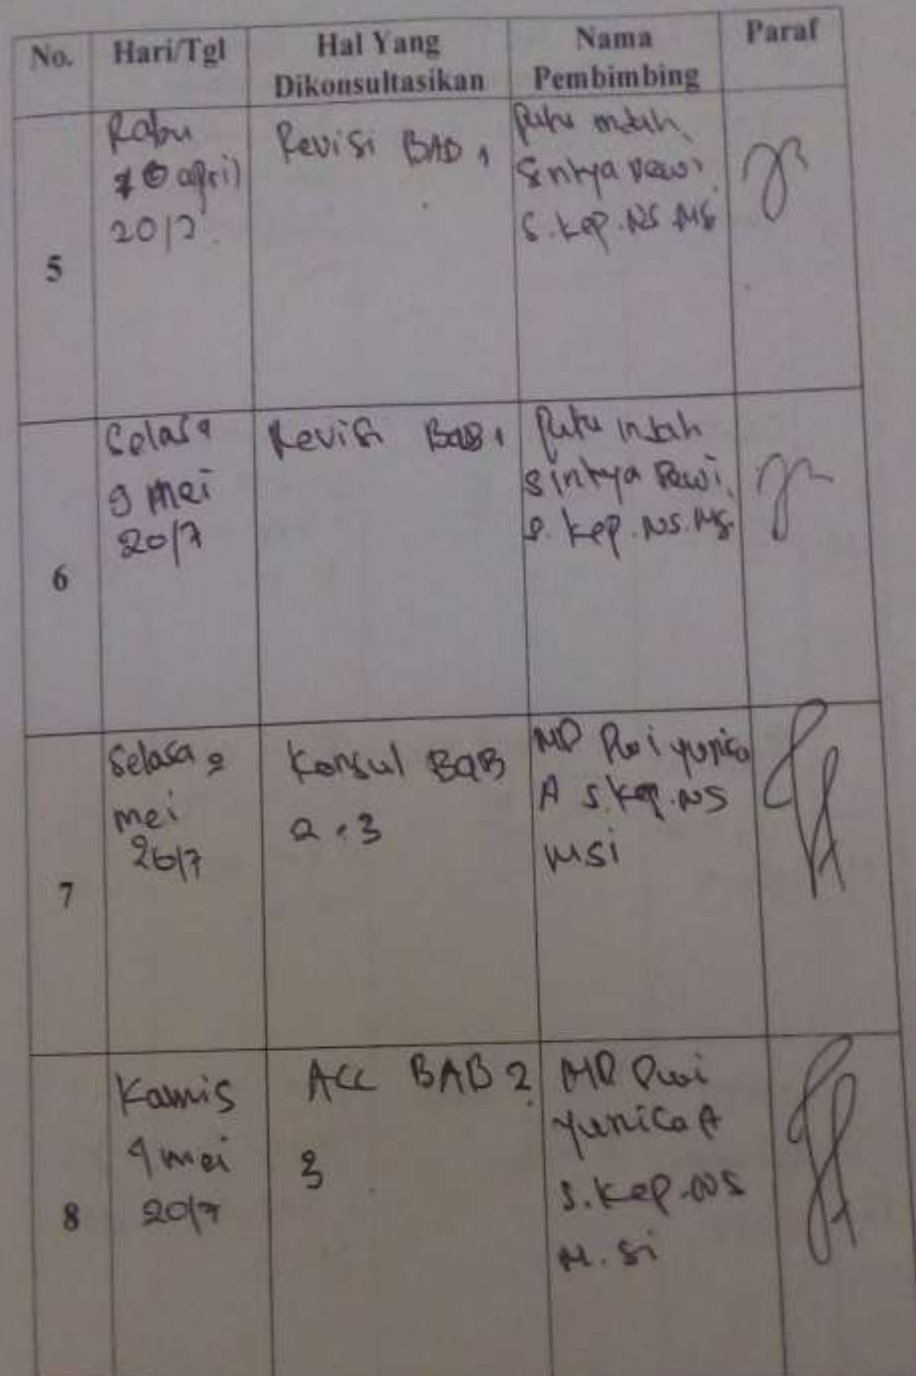 No. Hari/Tgl Hal Yang Dikonsultasikan Nama Pembimbing Paraf
5
Rabu
april
2017
Revisi BAB 1
Putu indah
sintya Dewi
S.kep.NS.MS
6
Selasa
9 mei
2017
Revisi BAB 1
Putu indah
sintya Dewi.
S.kep.NS.MS.
7
Selasa 9
mei
2017
Konsul BAB
2.3
MD Dwi yunica
A S.kep.NS
MSi
8
Kamis
4 mei
2017
ACC BAB 2
3
MD Dwi
yunica A
S.kep.NS
M.Si